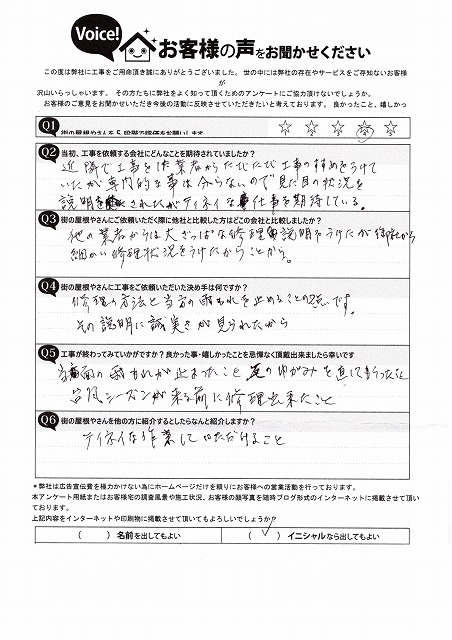 Voice!
お客様の声をお聞かせください
この度は弊社に工事をご用命頂き誠にありがとうございました。世の中には弊社の存在やサービスをご存知ないお客様
が
沢山いらっしゃいます。その方たちに弊社をよく知って頂くためのアンケートにご協力頂けないでしょうか。
お客様のご意見をお聞かせいただき今後の活動に反映させていただきたいと考えております。良かったこと、嬉しかっ
Q1
街の屋根やさんを5段階で評価をお願いします
1 2 3 4 5
Q2 当初、工事を依頼する会社にどんなことを期待されていましたか？
近隣で工事を 業者からたびたび工事のすすめをうけて
いたが専門的な事は分らないので見た目の状況を
説明 されたがテイネイな仕事を期待している。
Q3 街の屋根やさんにご依頼いただく際に他社と比較した方はどこの会社と比較しましたか？
他の業者からは大ざっぱな修理の説明をうけたが御社から
細かい修理状況をうけたからことから。
Q4 街の屋根やさんに工事をご依頼いただいた決め手は何ですか？
修理の方法と当方の雨もれを止めることの2点です。
その説明に誠実さが見られたから
Q5 工事が終わってみていかがですか？良かった事・嬉しかったことを忌憚なく頂戴出来ましたら幸いです
雨もれが止まったこと のゆがみを直して
シーズンが来る前に修理出来たこと
Q6 街の屋根やさんを他の方に紹介するとしたらなんと紹介しますか？
テイネイな作業していただけること
＊弊社は広告宣伝費を極力かけない為にホームページだけを頼りにお客様への営業活動を行っております。
本アンケート用紙またはお客様宅の調査風景や施工状況、お客様の顔写真を随時ブログ形式のインターネットに掲載させて頂い
ております。
上記内容をインターネットや印刷物に掲載させて頂いてもよろしいでしょうか？
（　　）名前を出してもよい （ ✓ ）イニシャルなら出してもよい